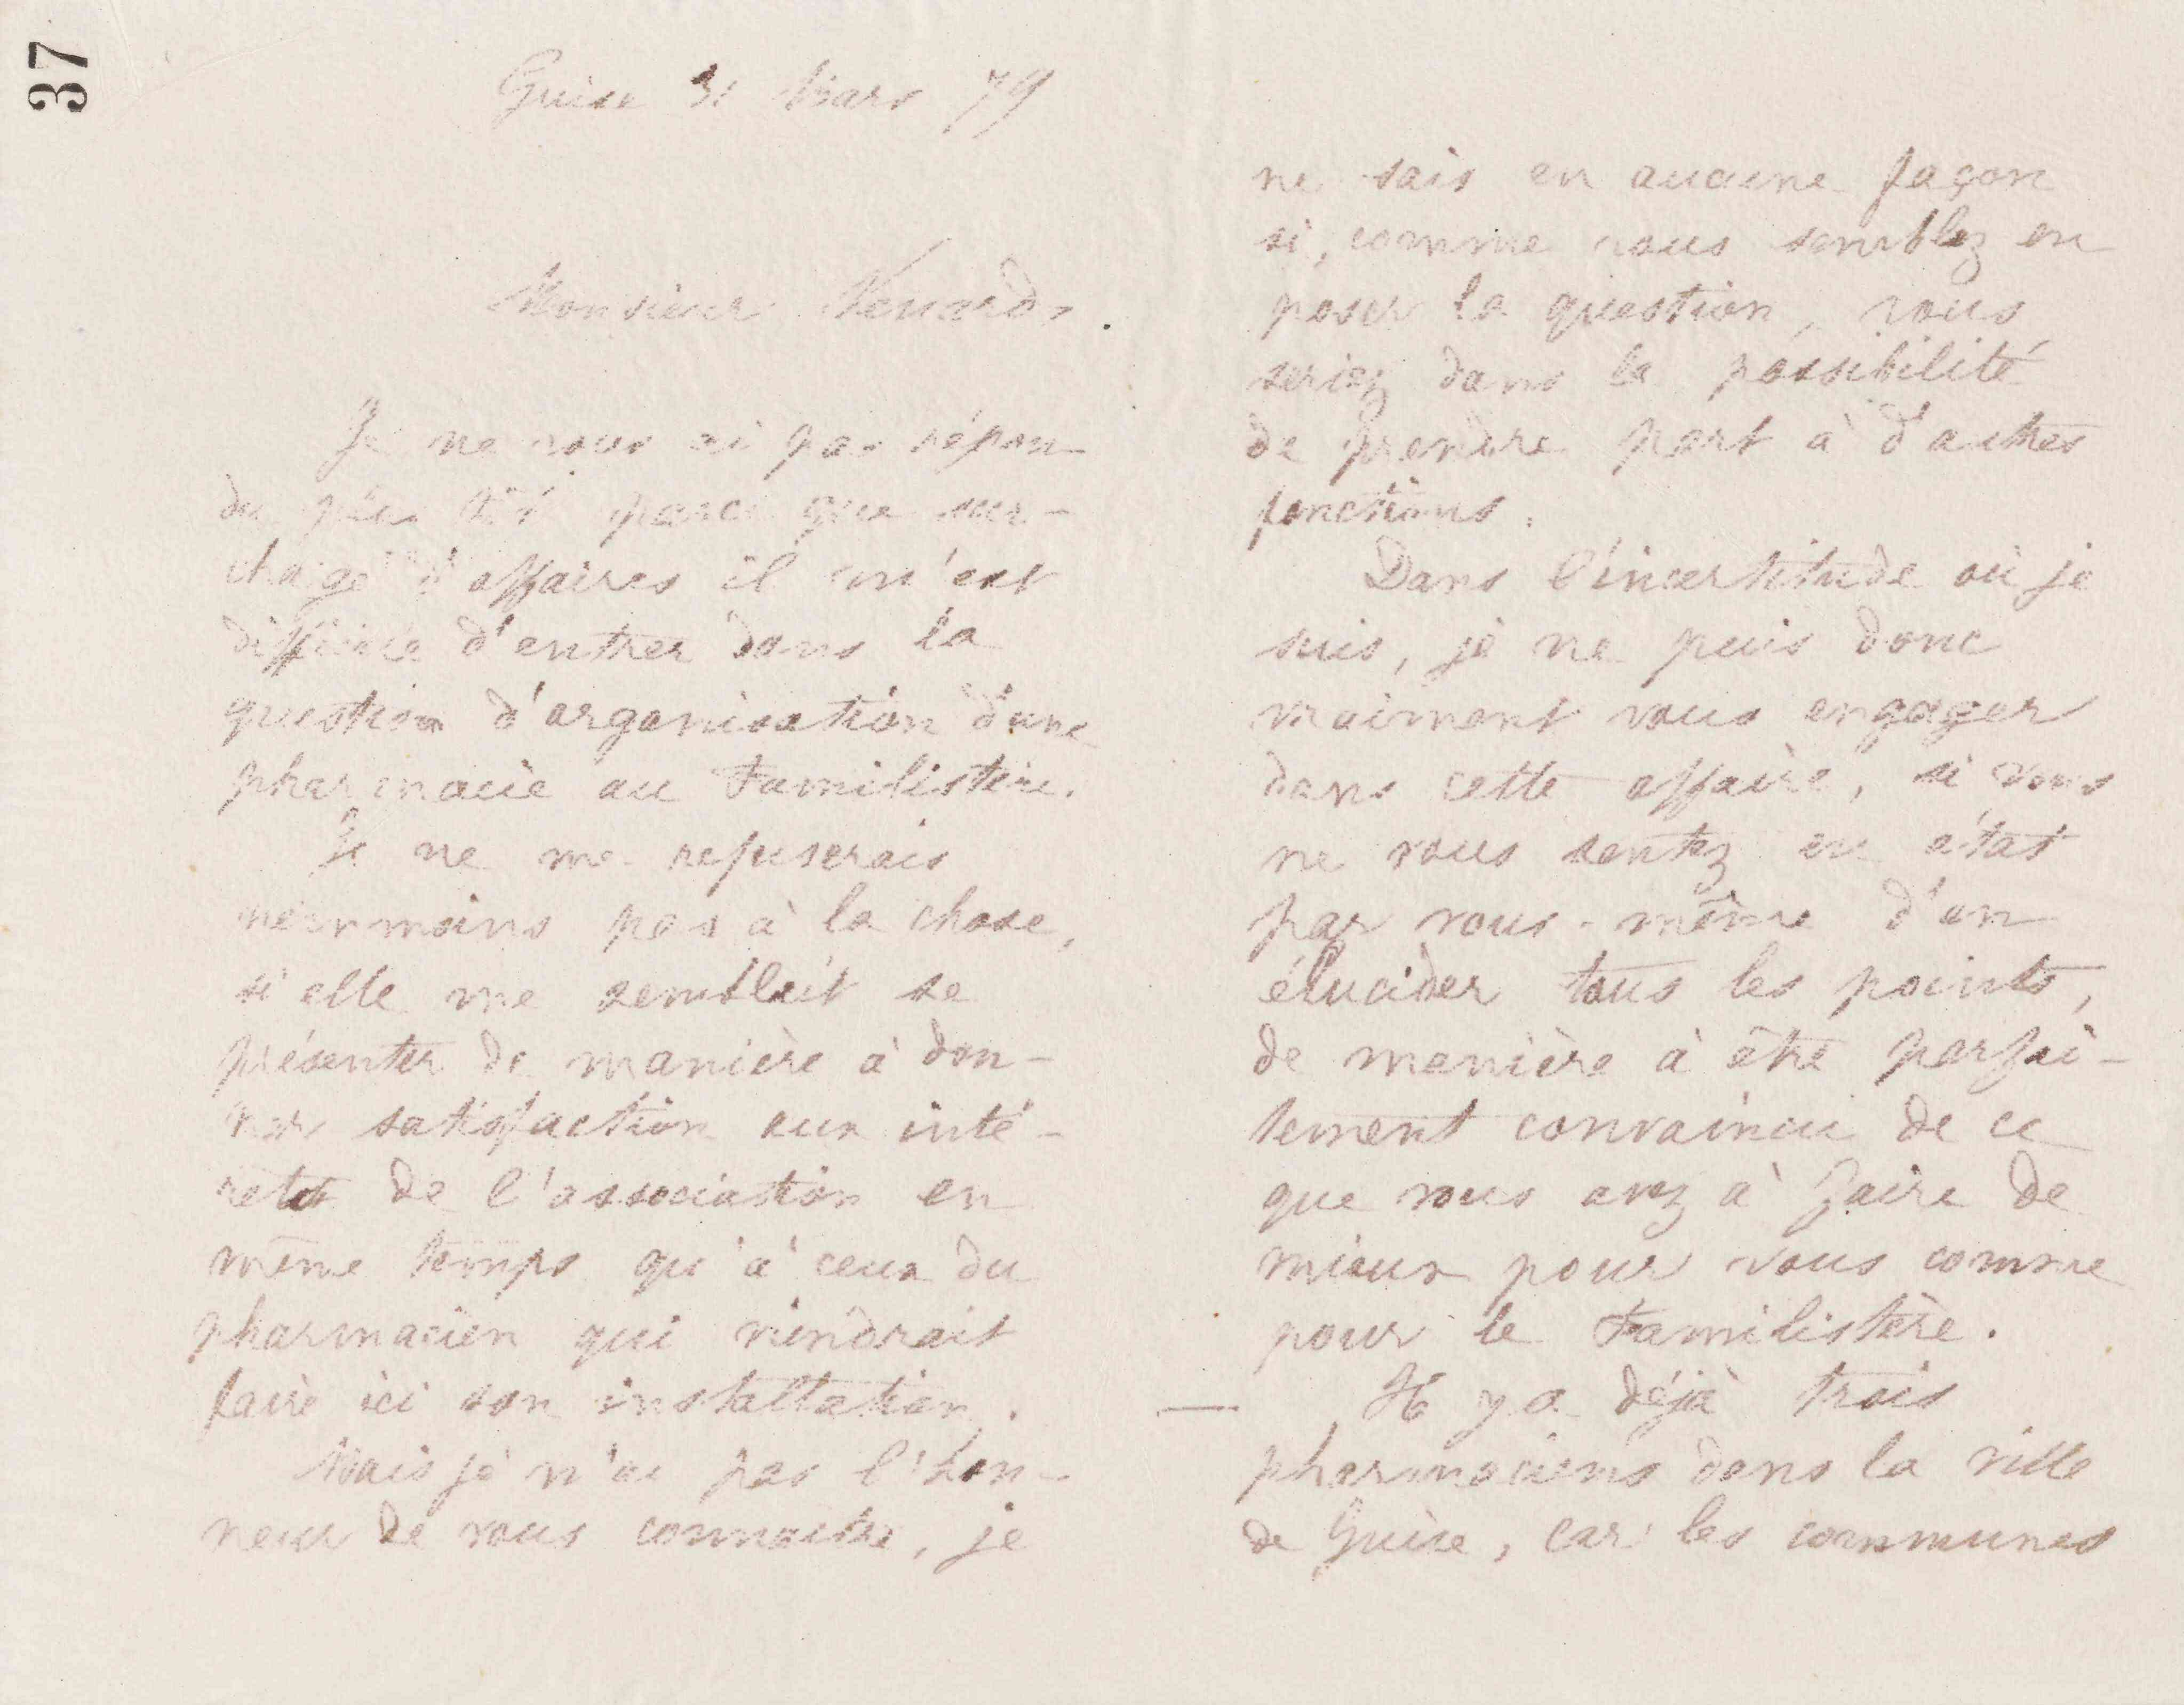 37
Guise 31 Mars 79
Monsieur
Je ne vous ai pas répon-
du plus tôt parce que sur-
chargé d'affaires il m'est
difficile d'entrer dans la
question d'organisation d'une
pharmacie au Familistère.
Je ne me refuserais
néanmoins pas à la chose,
si elle me semblait se
présenter de manière à don-
ner satisfaction aux inté-
rets de l'association en
même temps qu'à ceux du
pharmacien qui viendrait
faire ici son installation.
Mais je n'ai pas l'hon-
neur de vous connaitre, je
ne sais en aucune façon
si, comme vous semblez en
poser la question, vous
seriez dans la possibilité
de prendre part à d'autres
fonctions.
Dans l'incertitude où je
suis, je ne puis donc
vraiment vous engager
dans cette affaire, si vous
ne vous sentez en état
par vous-même d'en
élucider tous les points,
de manière à être parfai-
tement convaincu de ce
que vous avez à faire de
mieux pour vous comme
pour le Familistère.
— Il y a déjà trois
pharmaciens dans la ville
de Guise, car les communes